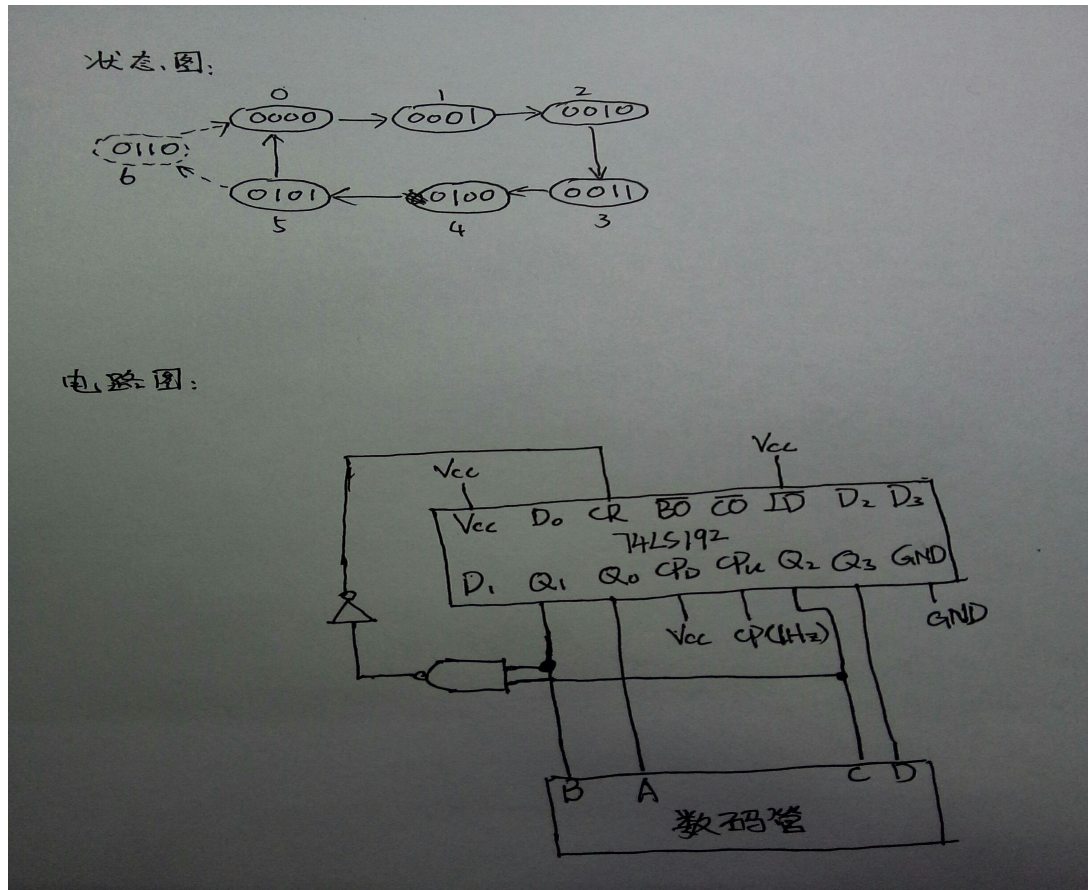 状态图:
0 1 2
0000 0001 0010
0110
6
0101 0100 0011
5 4 3
电路图:
Vcc
Vcc
Vcc D₀ CR B̅O̅ C̅O̅ L̅D̅ D₂ D₃
74LS192
D₁ Q₁ Q₀ CP_D CP_u Q₂ Q₃ GND
Vcc CP(1Hz) GND
B A C D
数码管